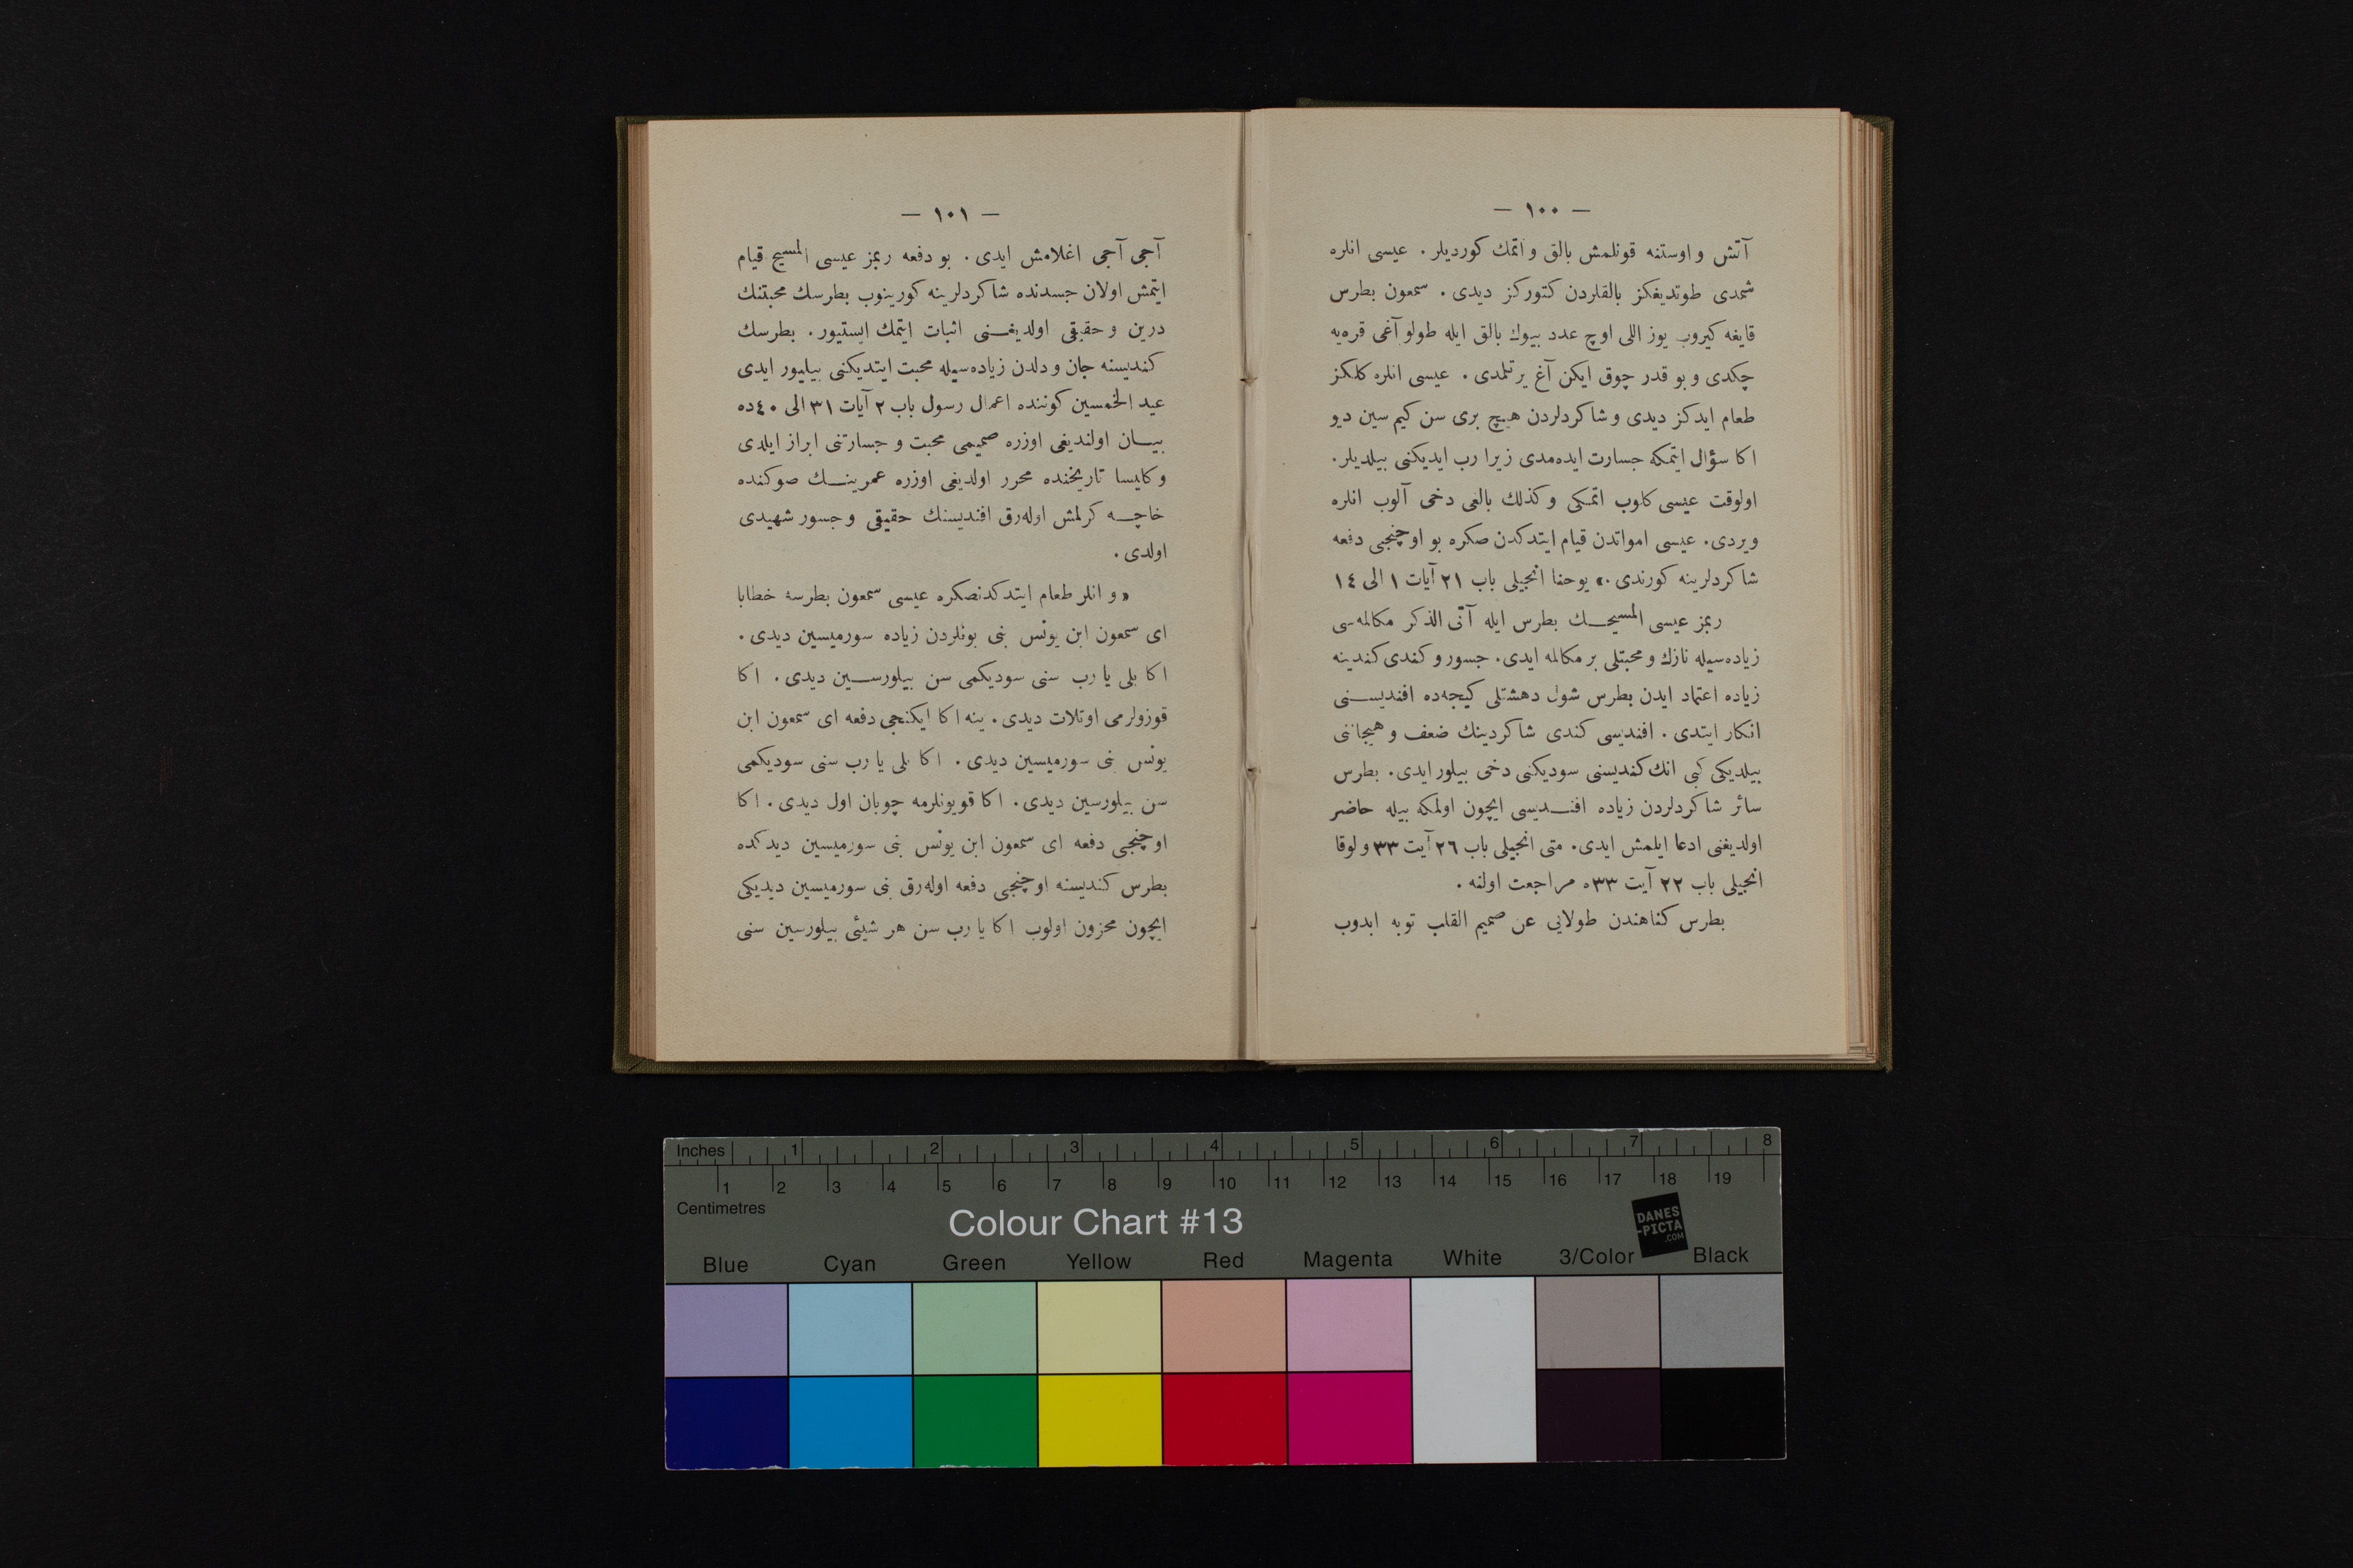 — ١٠٠ —
آتش و اوستنه قونلمش بالق و اتمك كورديلر . عيسى انلره
شمدى طوتديغكز بالقلردن كتورکز ديدى . سمعون بطرس
قايغه كيروب يوز اللى اوچ عدد بيوك بالق ايله طولو آغى قره‌يه
چكدى و بو قدر چوق ايكن آغ يرتلمدى . عيسى انلره كلكز
طعام ايدكز ديدى و شاكردلردن هيچ برى سن كيم سين ديو
اكا سؤال ايتمكه جسارت ايده‌مدى زيرا رب ايديكنى بيلديلر .
اولوقت عيسى كلوب اتمكى و كذلك بالغى دخى آلوب انلره
ويردى . عيسى امواتدن قيام ايتدكدن صكره بو اوچنجى دفعه
شاكردلرينه كورندى .» يوحنا انجيلى باب ٢١ آيات ١ الى ١٤
ربمز عيسى المسيحـك بطرس ايله آتى الذكر مكالمه‌سى
زياده‌سيله نازك و محبتلى بر مكالمه ايدى . جسور و كندى كندينه
زياده اعتماد ايدن بطرس شول دهشتلى كيجه‌ده افنديسـنى
انكار ايتدى . افنديسى كندى شاكردينك ضعف و هيجاننى
بيلديكى كبى انك كنديسنى سوديكنى دخى بيلور ايدى . بطرس
سائر شاكردلردن زياده افنـديسى ايچون اولمكه بيله حاضر
اولديغنى ادعا ايلمش ايدى . متى انجيلى باب ٢٦ آيت ٣٣ و لوقا
انجيلى باب ٢٢ آيت ٣٣ه مراجعت اولنه .
بطرس كناهندن طولايى عن صميم القلب توبه ايدوب
— ١٠١ —
آجى آجى اغلامش ايدى . بو دفعه ربمز عيسى المسيح قيام
ايتمش اولان جسدنده شاكردلرينه كورينوب بطرسك محبتنك
درين و حقيقى اولديغـنى اثبات ايتمك ايستيور . بطرسك
كنديسنه جان و دلدن زياده‌سيله محبت ايتديكنى بيليور ايدى
عيد الخمسين كوننده اعمال رسول باب ٢ آيات ٣١ الى ٤٠ده
بيـان اولنديغى اوزره صميمى محبت و جسارتنى ابراز ايلدى
و كليسا تاريخنده محرر اولديغى اوزره عمرينـك صوكنده
خاچـه كرلمش اوله‌رق افنديسنك حقيقى و جسور شهيدى
اولدى .
« و انلر طعام ايتدكدنصكره عيسى سمعون بطرسه خطابا
اى سمعون ابن يونس بنى بونلردن زياده سورميسين ديدى .
اكا بلى يا رب سنى سوديكمى سن بيلورسـين ديدى . اكا
قوزولرمى اوتلات ديدى . ينه اكا ايكنجى دفعه اى سمعون ابن
يونس بنى سورميسين ديدى . اكا بلى يا رب سنى سوديكمى
سن بيلورسين ديدى . اكا قويونلرمه چوبان اول ديدى . اكا
اوچنجى دفعه اى سمعون ابن يونس بنى سورميسين ديدكده
بطرس كنديسنه اوچنجى دفعه اوله‌رق بنى سورميسين ديديكى
ايچون محزون اولوب اكا يا رب سن هر شيئى بيلورسين سنى
Inches 1 2 3 4 5 6 7 8
1 2 3 4 5 6 7 8 9 10 11 12 13 14 15 16 17 18 19
Centimetres
Colour Chart #13
DANES
-PICTA
.COM
Blue Cyan Green Yellow Red Magenta White 3/Color Black